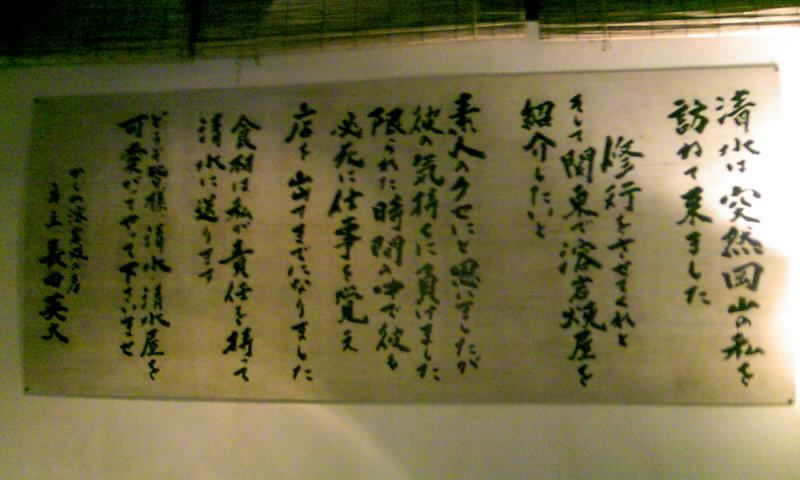 清水は突然岡山の私を
訪ねて来ました
修行をさせてくれと
そして関東で溶岩焼屋を
紹介したいと
素人のクセにと思いましたが
彼の気持ちに負けました
限られた時間の中で彼も
必死に仕事を覚え
店を出すまでになりました
食材は私が責任を持って
清水に送ります
どうぞ皆様 清水 清水屋を
可愛がってやって下さいませ
店主 長田英